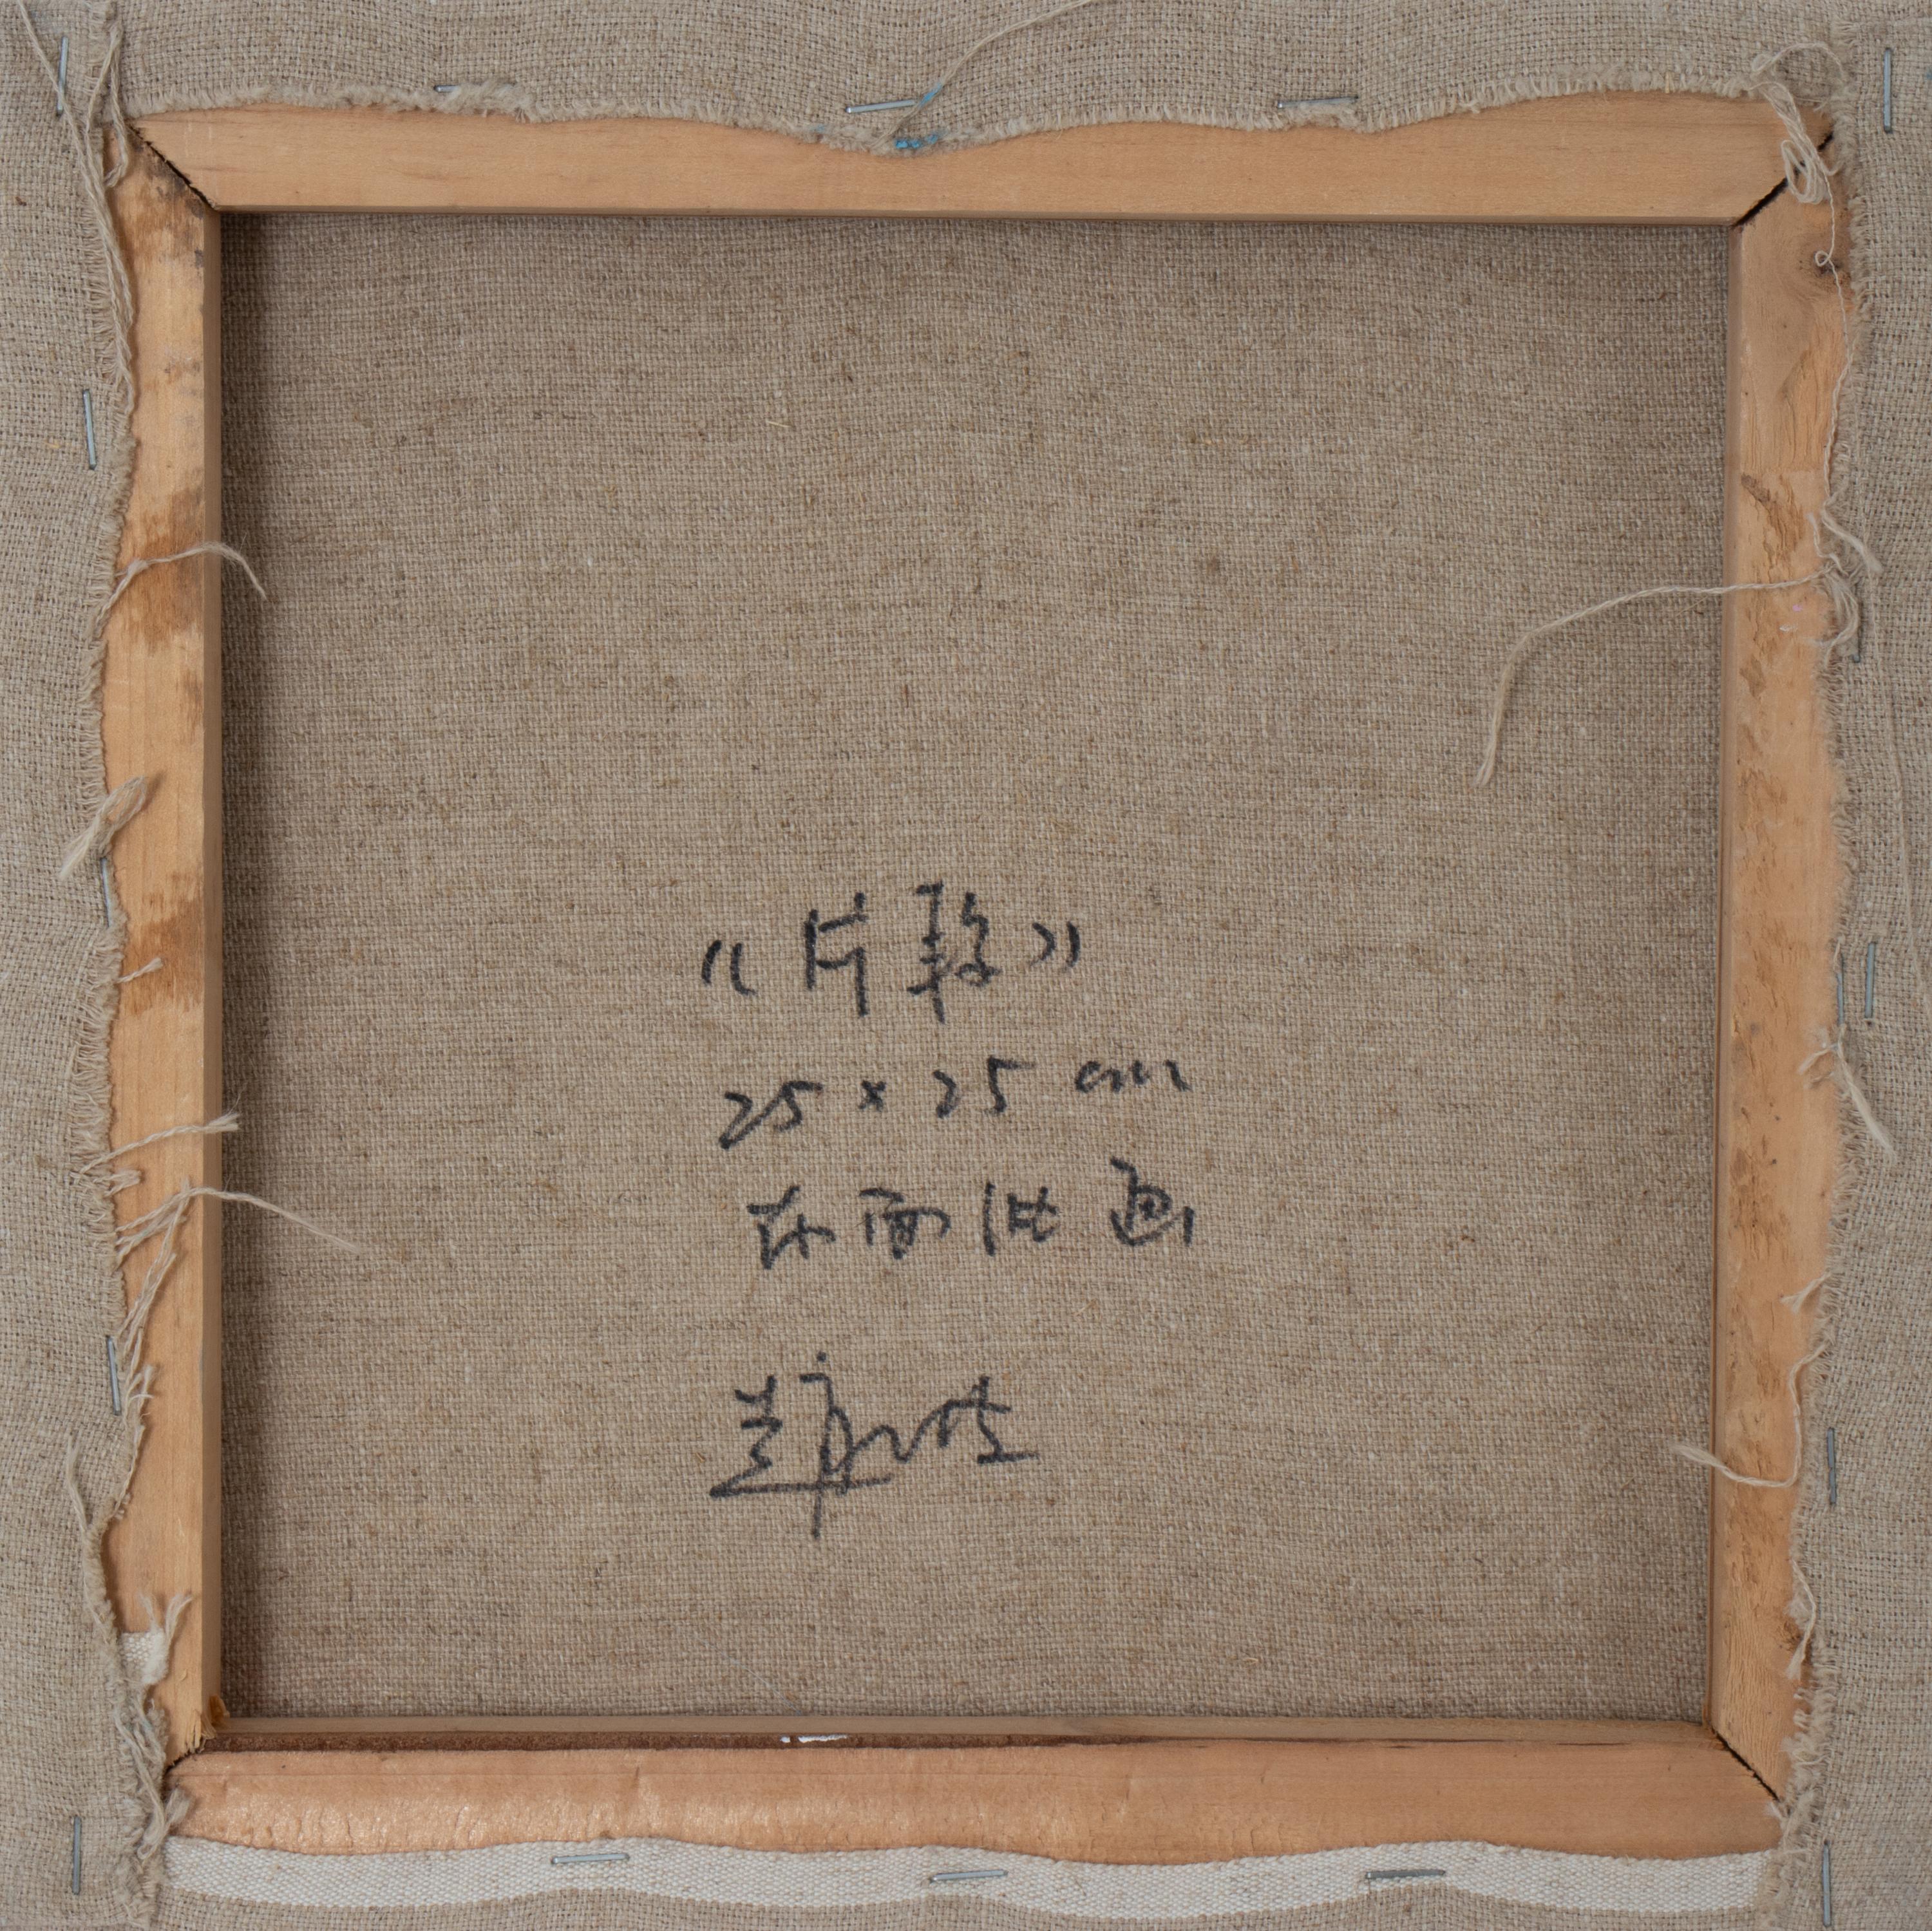 《片段》
25×25 cm
布面油画